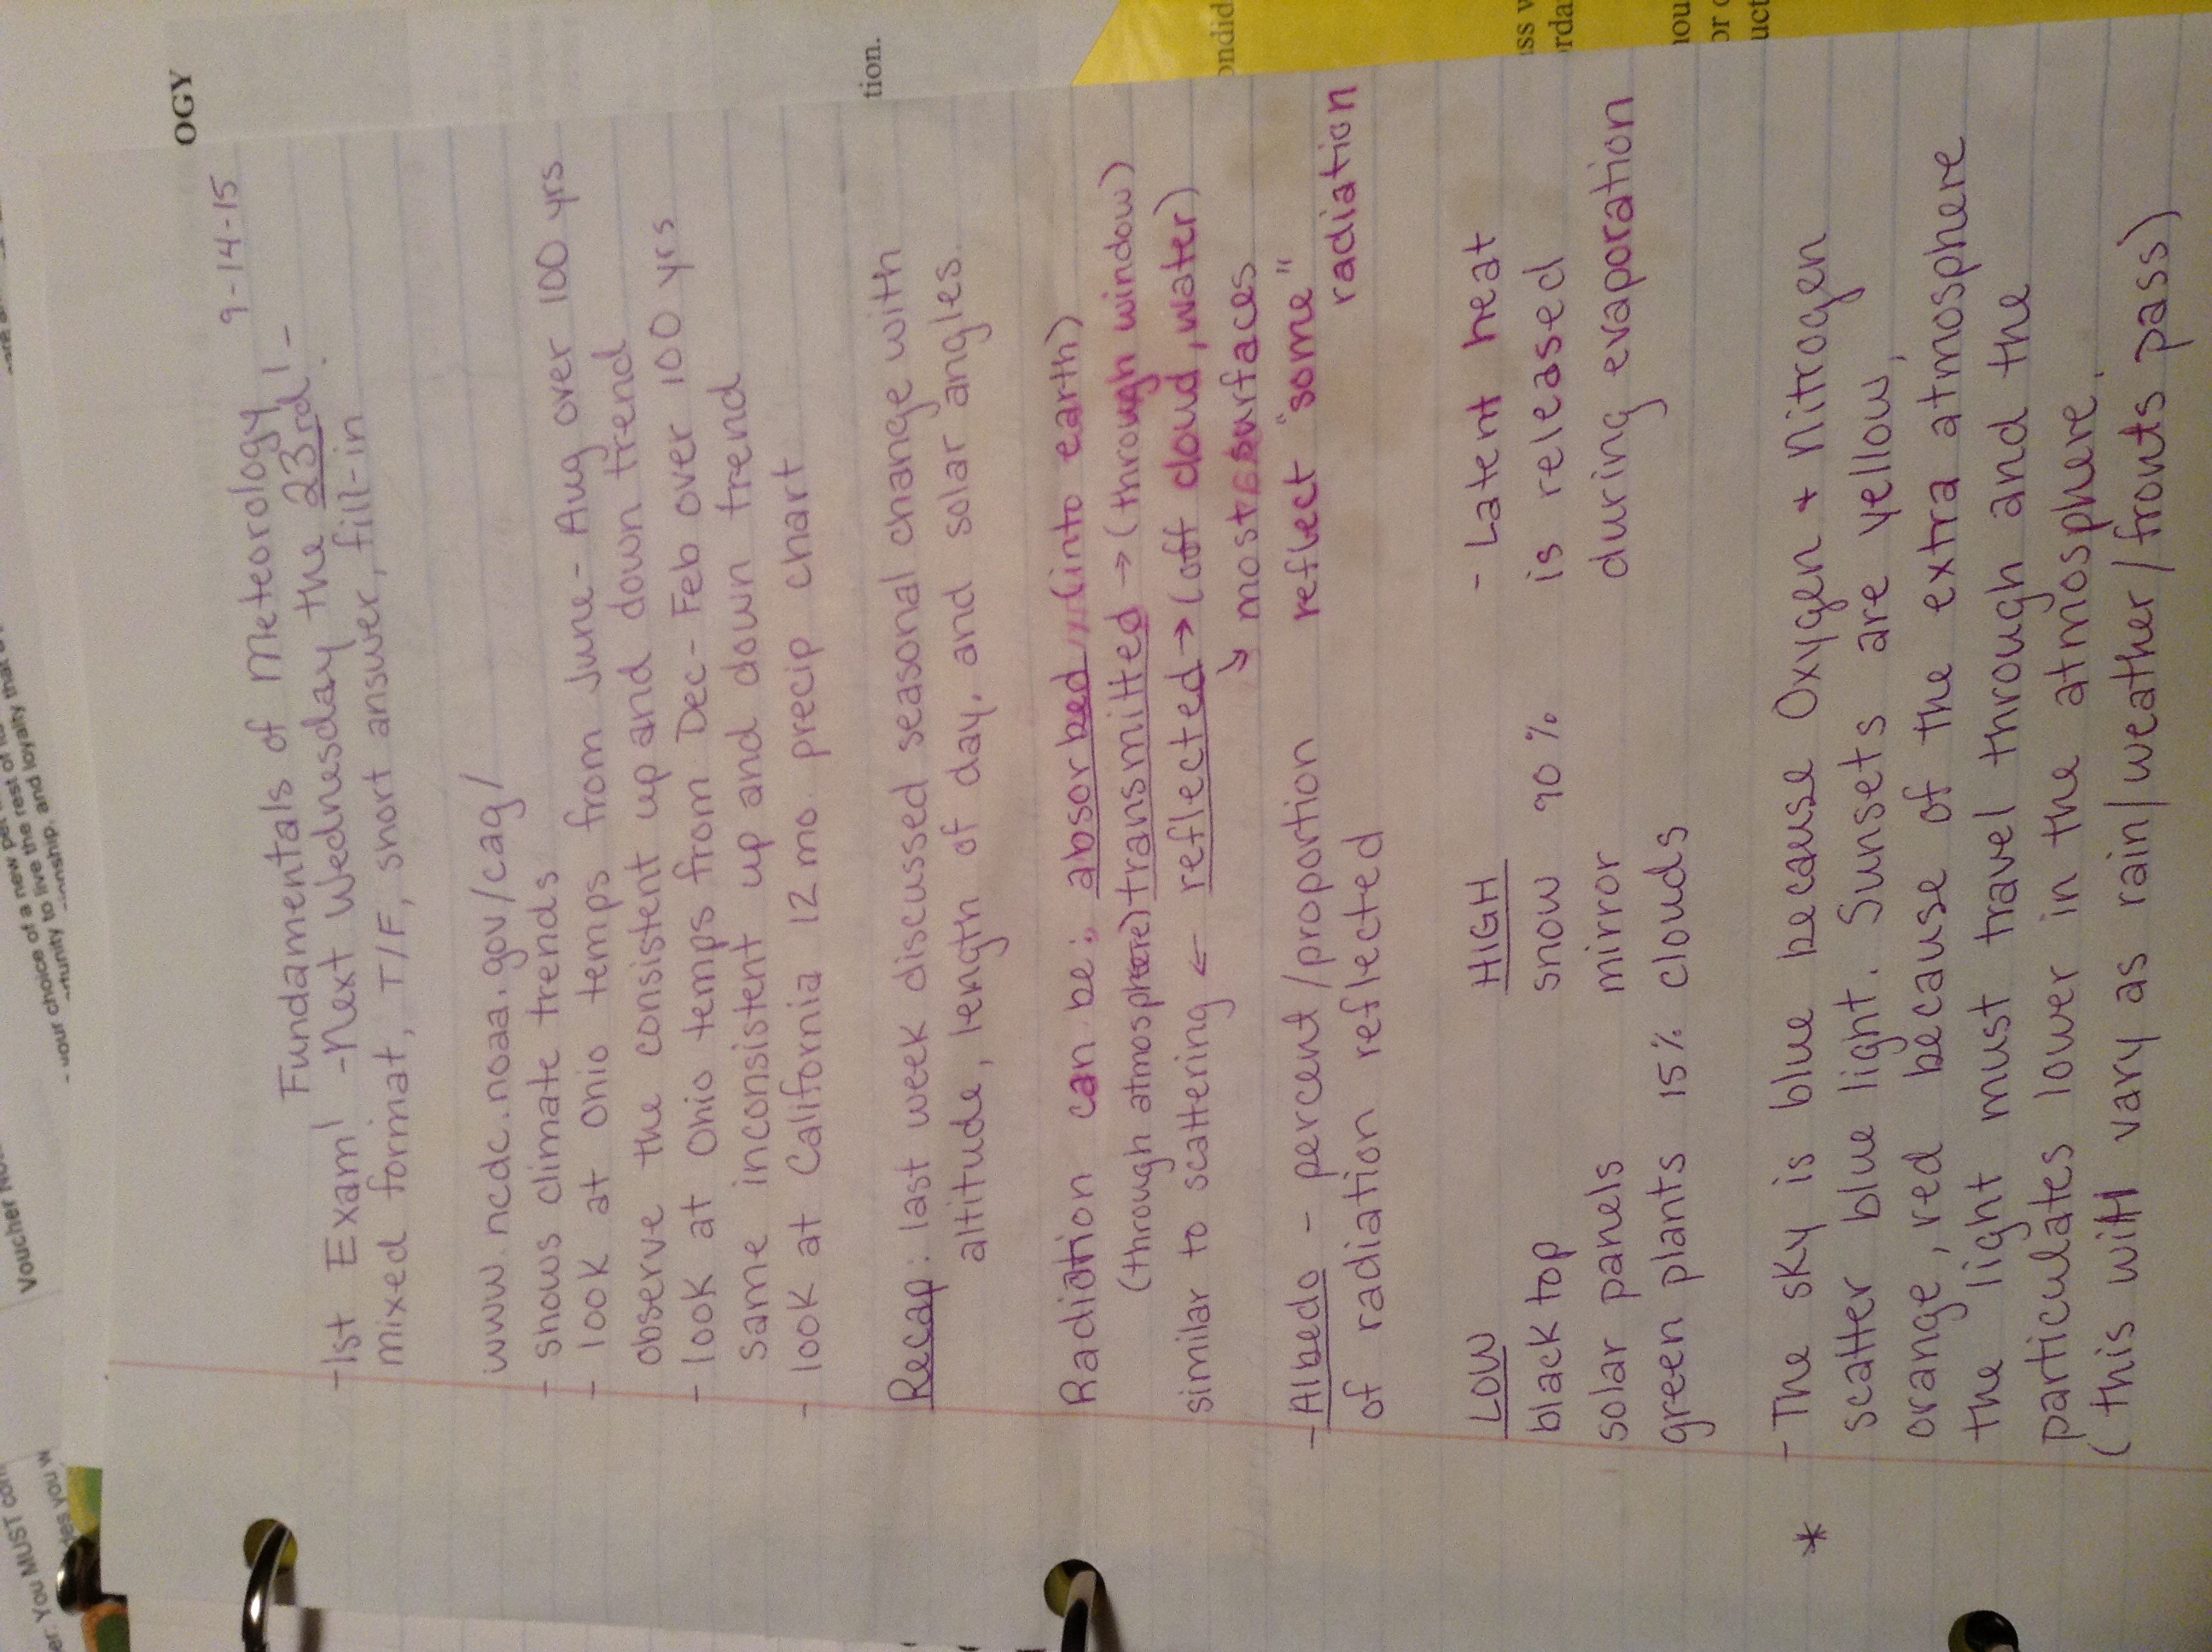 Fundamentals of Meteorology 9-14-15
-1st Exam! -Next Wednesday the 23rd! -
mixed format, T/F, short answer, fill-in
www.ncdc.noaa.gov/cag/
- shows climate trends
- look at Ohio temps from June-Aug over 100 yrs
observe the consistent up and down trend
- look at Ohio temps from Dec-Feb over 100 yrs
same inconsistent up and down trend
- look at California 12 mo. precip chart
Recap: last week discussed seasonal change with
altitude, length of day, and solar angles.
Radiation can be: absorbed (into earth)
(through atmosphere) transmitted → (through window)
similar to scattering ← reflected → (off cloud, water)
↘ most surfaces
reflect "some"
radiation
- Albedo - percent/proportion
of radiation reflected
LOW HIGH - Latent heat
blacktop snow 90% is released
solar panels mirror during evaporation
green plants 15% clouds
* - The sky is blue because Oxygen + Nitrogen
scatter blue light. Sunsets are yellow,
orange, red because of the extra atmosphere
the light must travel through and the
particulates lower in the atmosphere.
(this will vary as rain/weather/fronts pass)
OGY
tion.
ondid
Voucher
your choice of a new pet
to live the rest of its
and loyalty that
er. You MUST
uct